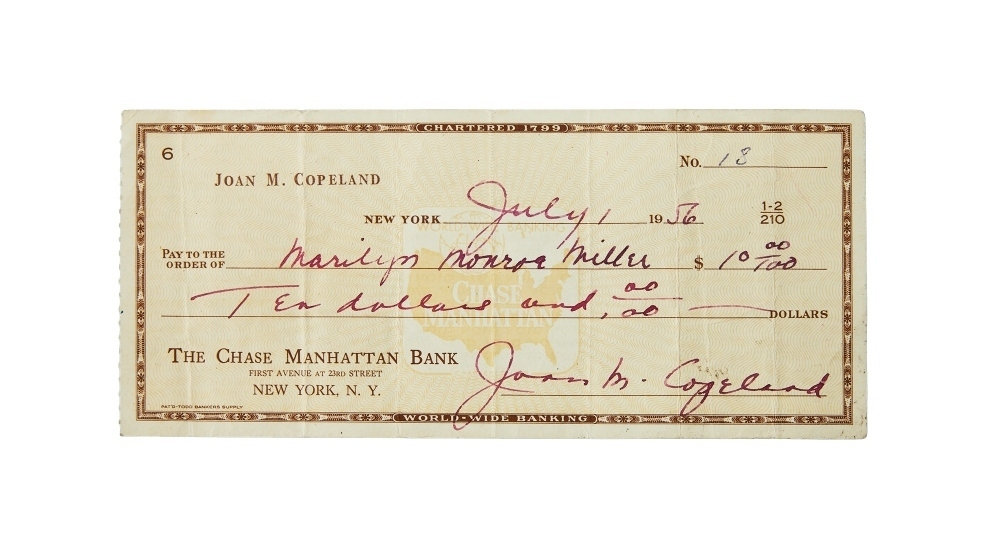 CHARTERED 1799
6
No. 13
JOAN M. COPELAND
NEW YORK July 1 1956
1-2
210
WORLD-WIDE BANKING
PAY TO THE
ORDER OF Marilyn Monroe Miller $ 10 00/100
CHASE
MANHATTAN
Ten dollars and, 00/00 DOLLARS
THE CHASE MANHATTAN BANK
FIRST AVENUE AT 23RD STREET
NEW YORK, N. Y.
Joan M. Copeland
PAT'D-TODD BANKERS SUPPLY
WORLD-WIDE BANKING